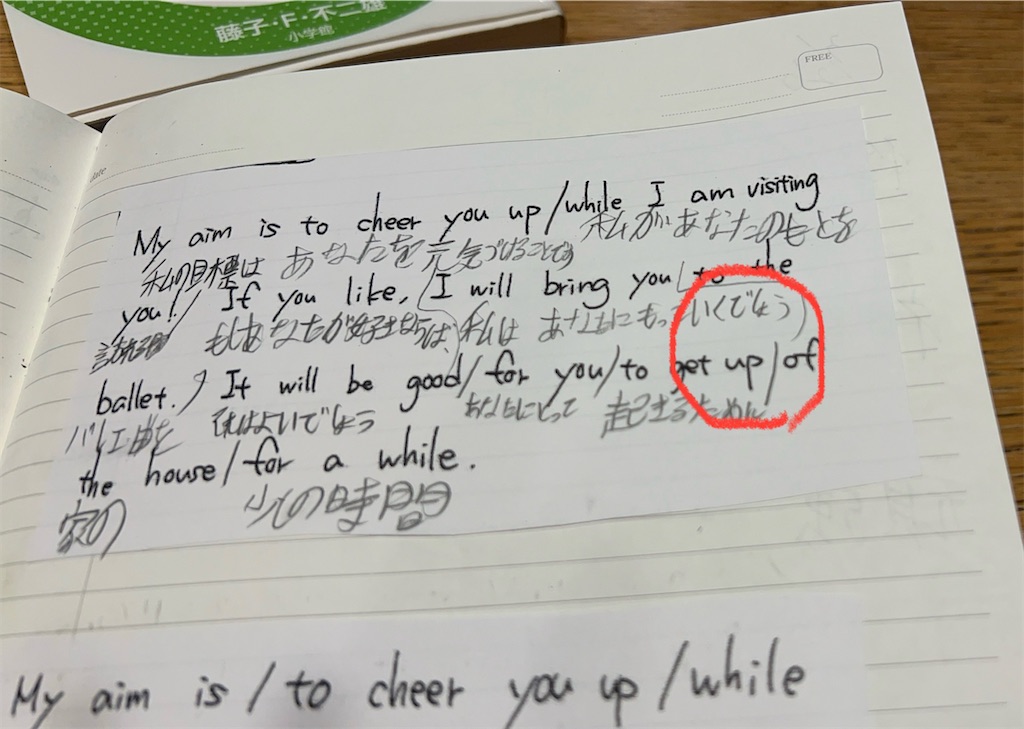 藤子・F・不二雄
小学館
FREE
date
My aim is to cheer you up/while I am visiting
私の目標は あなたを元気づけることです 私があなたのもとを
you!/ If you like, I will bring you/to the
もしあなたが好きならば、私は あなたにもっていくでしょう
ballet. It will be good/for you/to get up/of
それはよいでしょう あなたにとって 起きるために
the house/for a while.
家の 少しの時間
My aim is/to cheer you up/while